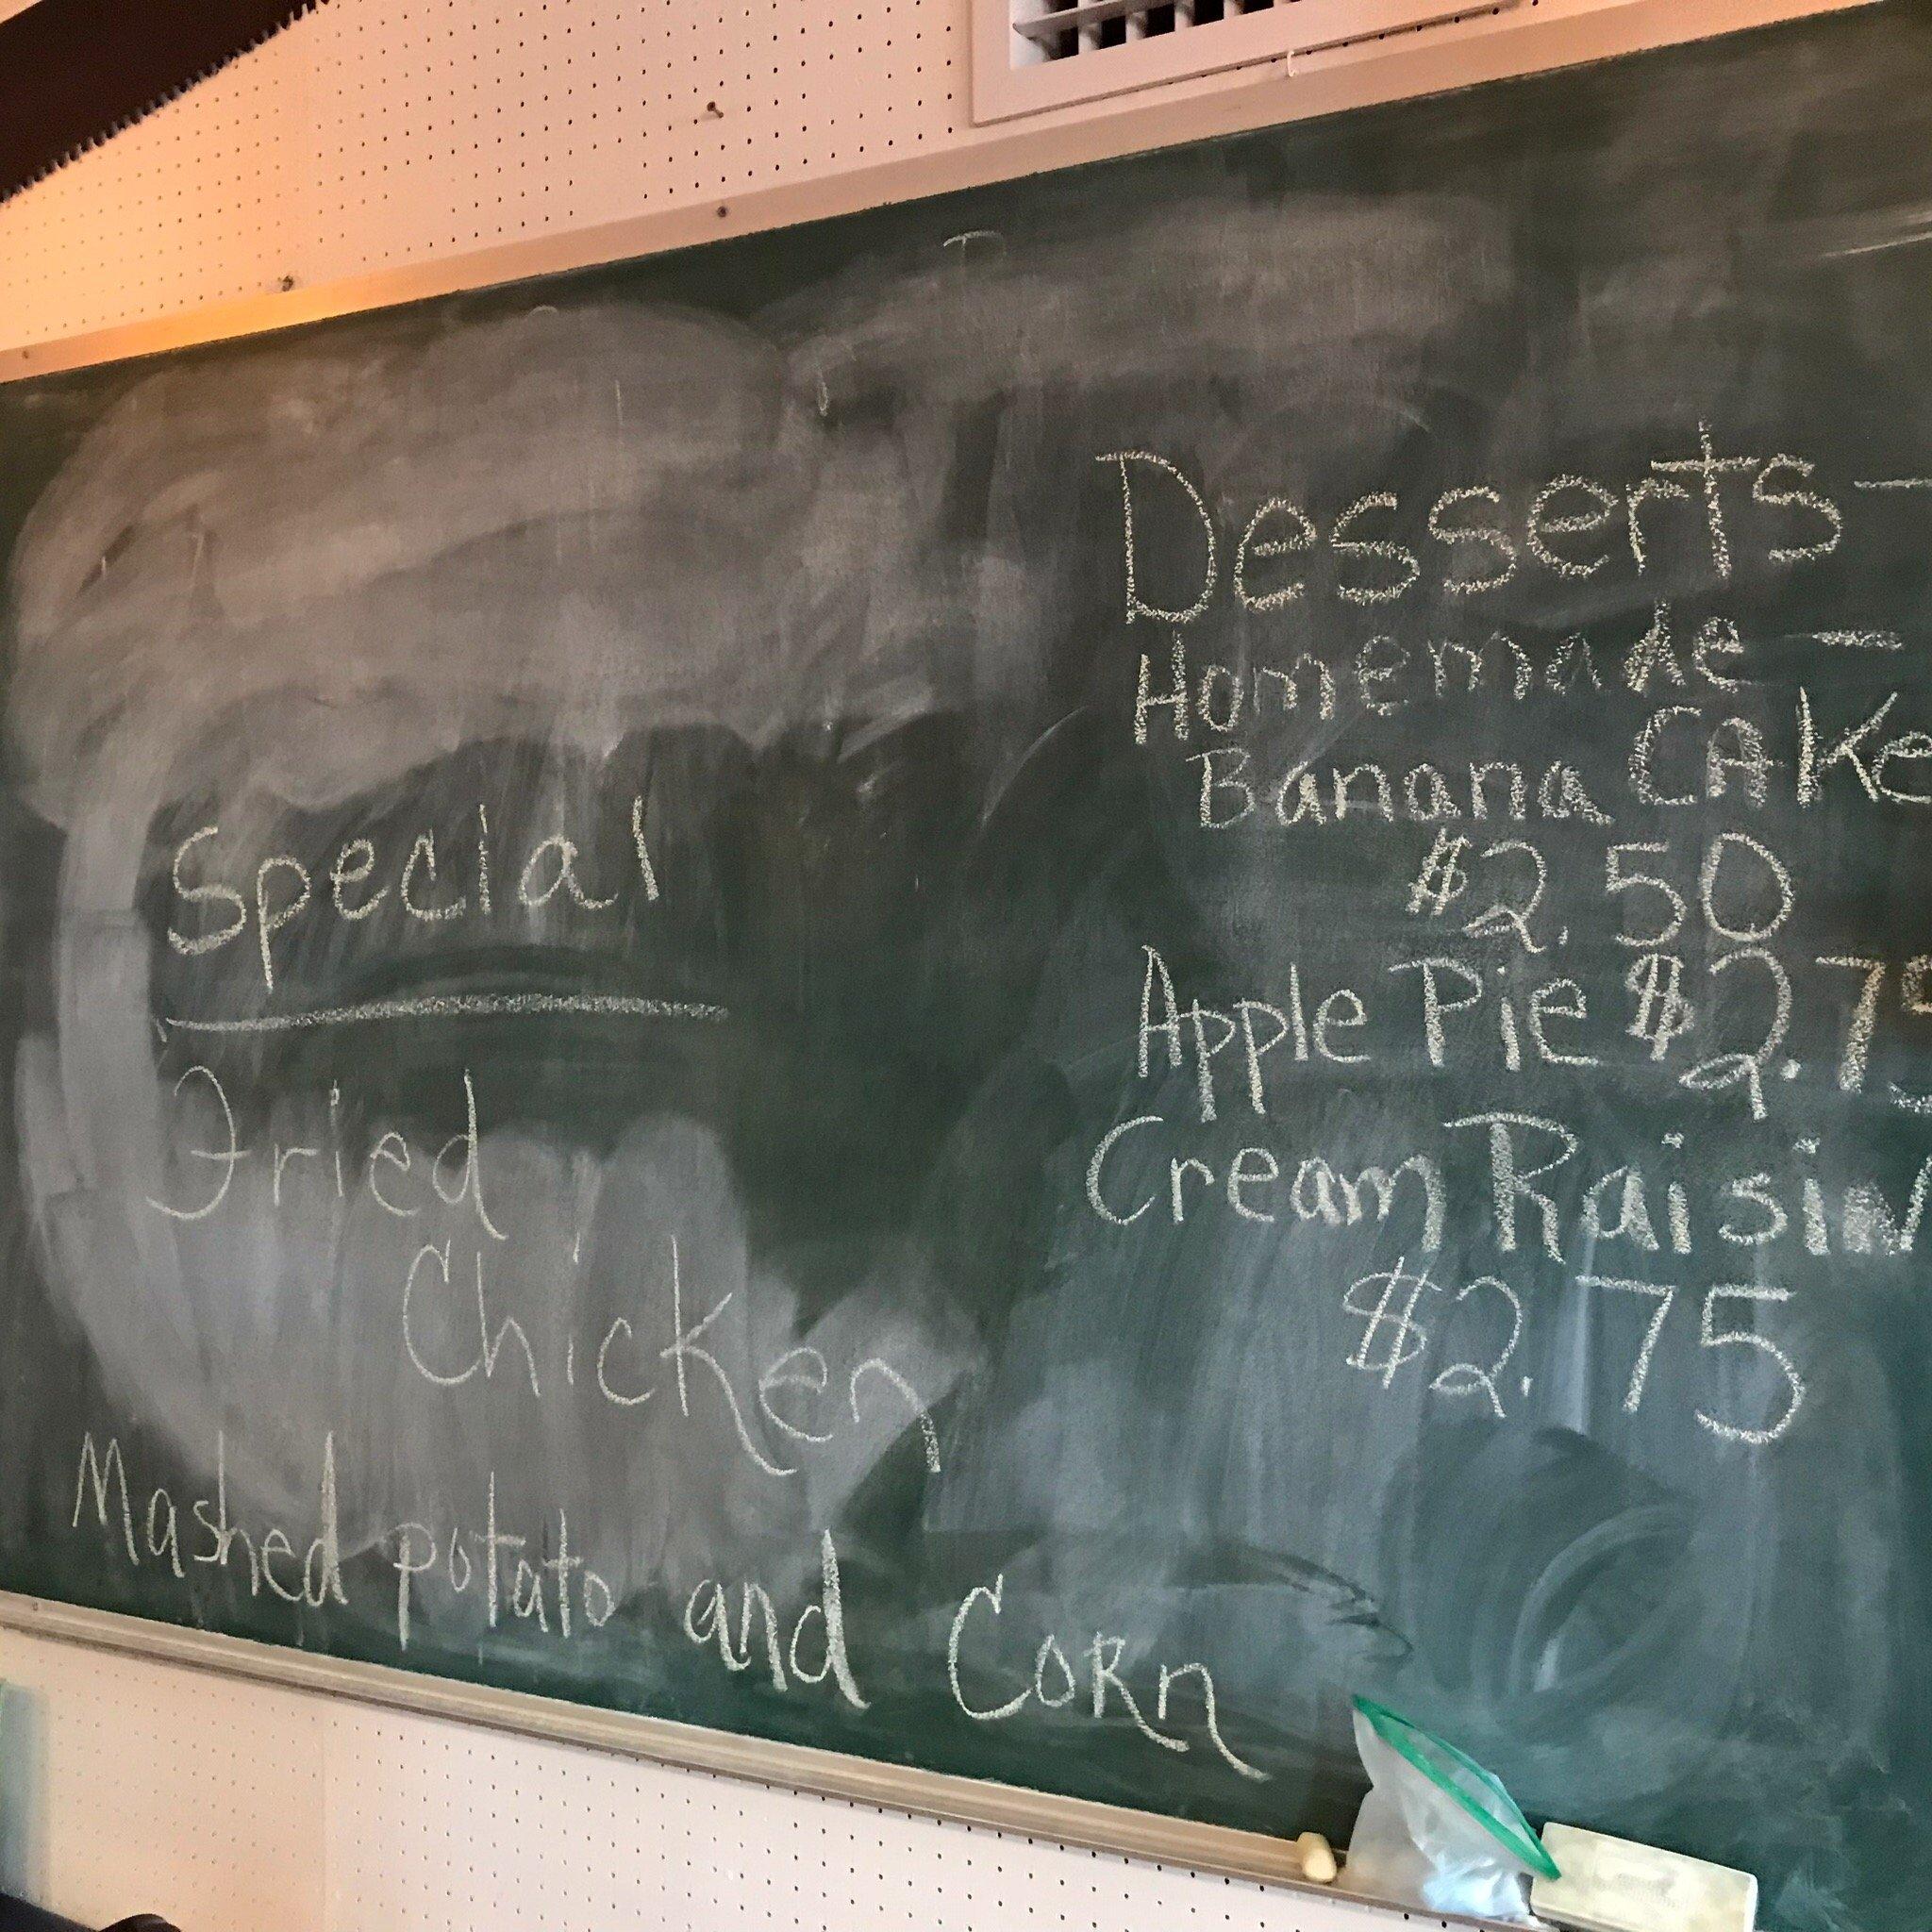 Special
Fried
Chicken
Mashed potato and Corn
Desserts -
Homemade -
Banana CAke
$2.50
Apple Pie $2.75
Cream Raisin
$2.75